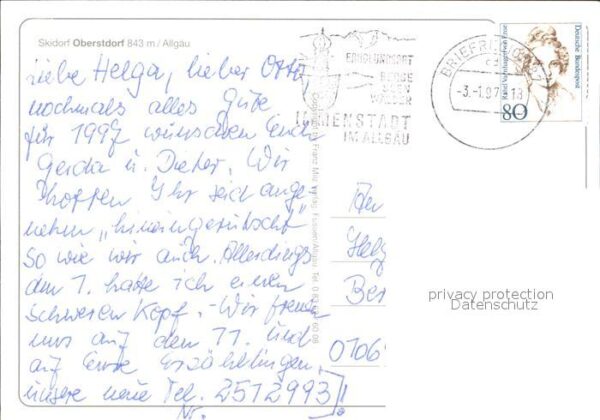 Skidorf Oberstdorf 843 m / Allgäu
Liebe Helga, lieber Otto,
nochmals alles Gute
für 1997 wünschen Euch
Gerda u. Dieter. Wir
hoffen Ihr seid ange-
nehm "hineingerutscht"
so wie wir auch. Allerdings
den 1. hatte ich einen
schweren Kopf. - Wir freuen
uns auf den 11. und
auf Eure Erzählungen,
unsere neue Tel. 2512993!
Nr.
ERHOLUNGSORT
BERGE
SEEN
WÄLDER
IMMENSTADT
IM ALLGÄU
BRIEFZENTRUM
-3.-1.97-18
Deutsche Bundespost
80
An
Helg
Ber
0106
privacy protection
Datenschutz